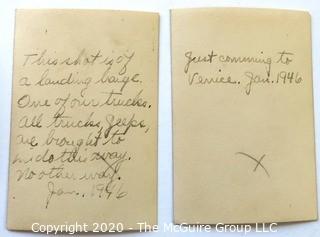 This shot is of
a landing barge.
One of our trucks.
All trucks, Jeeps,
are brought to
Lido this way.
No other way.
Jan. 1946
Just comming to
Venice. Jan. 1946
Copyright © 2020 - The McGuire Group, LLC